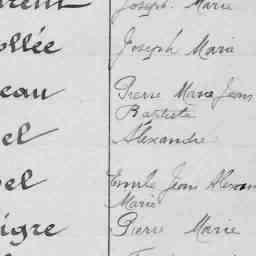 Joseph Marie
ollée Joseph Marie
eau Pierre Marie Jean
Baptiste
el Alexandre
el Emile Jean
Marie
igre Pierre Marie